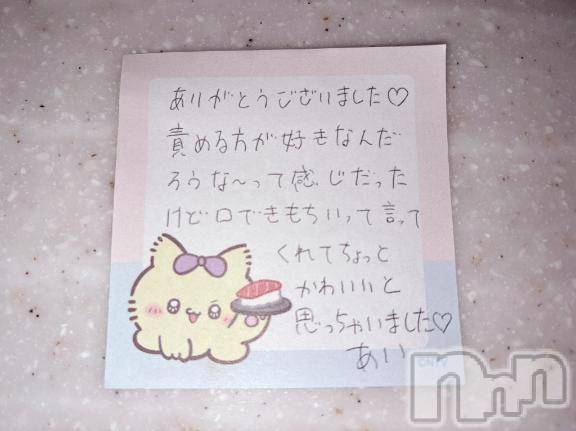 ありがとうございました♡
責める方が好きなんだ
ろうな〜って感じだった
けど口できもちいって言って
くれてちょっと
かわいいと
思っちゃいました♡
あい
©NTV
nnn